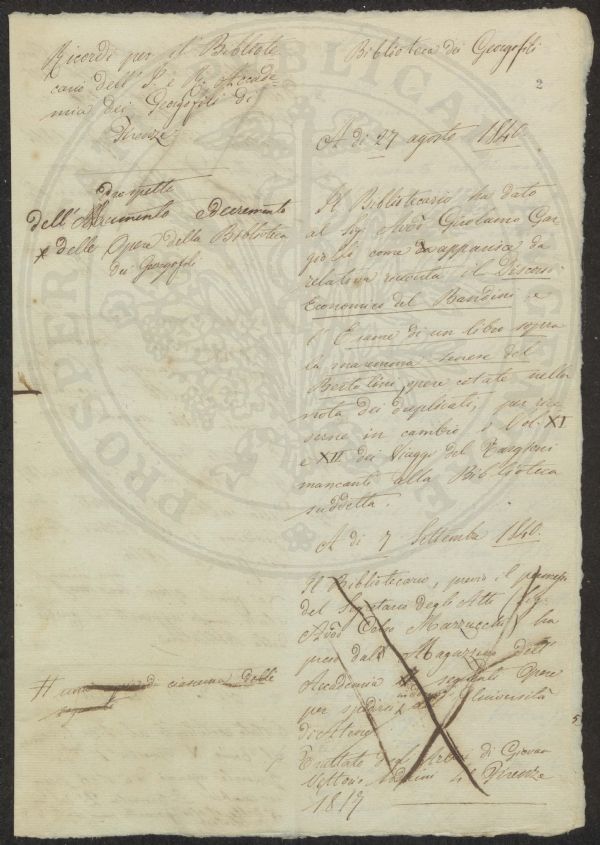 Ricordi per il Bibliote
cario dell' I. e R. Accade-
mia dei Georgofili di
Firenze
Prospetto
dell' Aumento e decremento
delle Opere della Biblioteca
dei Georgofili
# una di ciascuna delle
Biblioteca dei Georgofili
2
A di 27 agosto 1840.
Il Bibliotecario ha dato
al Sig. Avv. Girolamo Gar
come apparisce da
relativa ricevuta il Discorso
Economico del Bandini, e
l' Esame di un libro sopra
la maremma senese del
Bertolini, opere citate nella
nota dei duplicati, per
in cambio i Vol. XI
e XII dei Viaggi del Targioni
mancanti alla Biblioteca
suddetta.
A di 7 Settembre 1840.
Il Bibliotecario, previo il
del Segretario degli Atti Sig.
Avv. Celso Marzucchi, ha
preso dal Magazzino dell'
Accademia le seguenti Opere
per spedirsi Università
di Atene
Trattato degli Arbori di Giovan
Vettorio 4° Firenze
1817
5
PROSPER PUBLICAE